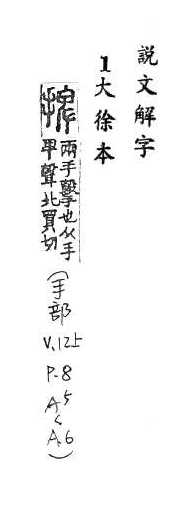 説文解字
1大徐本
捭
兩手擊也从手
卑聲北買切
(手部
V.12上
P-8
A5
く
A.6)